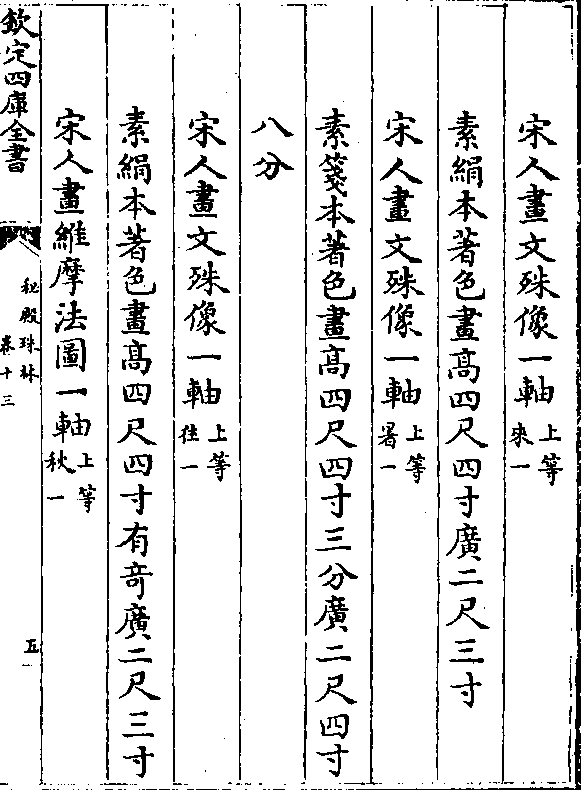 宋人畫文殊像一軸上等來一
素絹本著色畫髙四尺四寸廣二尺三寸
宋人畫文殊像一軸上等暑一
素箋本著色畫髙四尺四寸三分廣二尺四寸
八分
宋人畫文殊像一軸上等往一
素絹本著色畫髙四尺四寸有竒廣二尺三寸
宋人畫維摩法圖一軸上等秋一
欽定四庫全書
秘殿珠林
卷十三
五